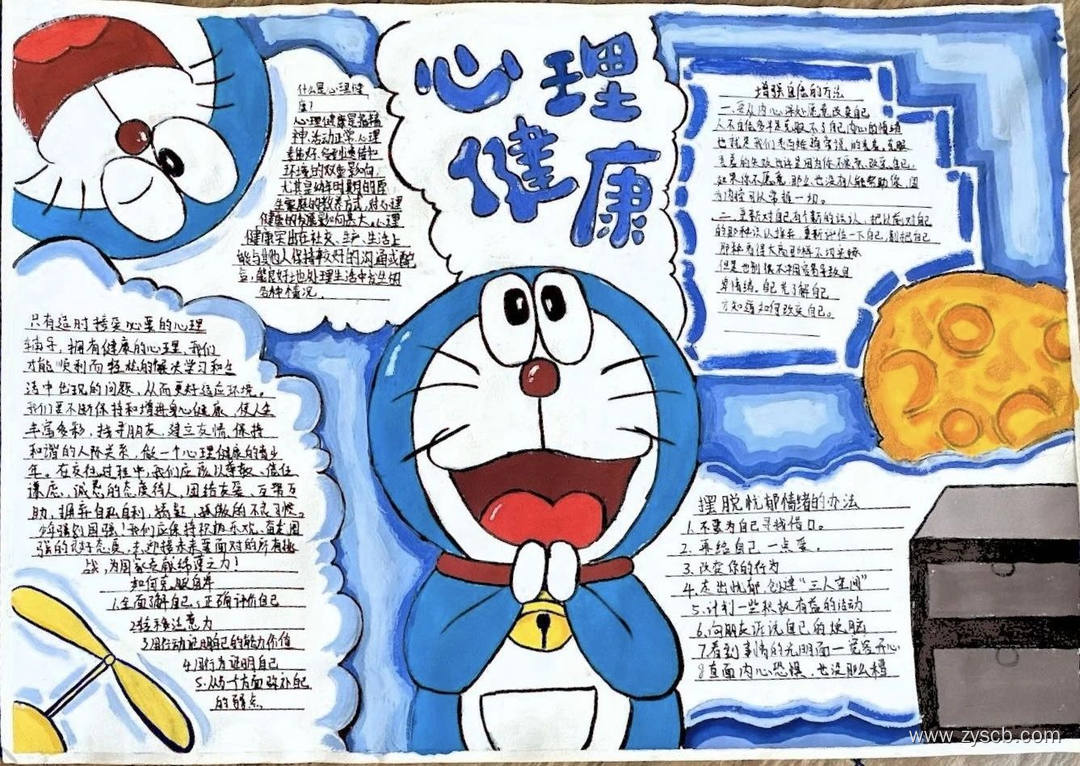 心理
健康
什么是心理健
康?
心理健康是指精
神、活动正常、心理
环境的双重影响,
尤其是幼年时期的原
生家庭的教养方式,对心理
健康的发展影响甚大。心理
健康突出在社交、生产、生活上
能与其他人保持较好的沟通或配
合,能良好地处理生活中发生的
各种情况。
只有适时接受必要的心理
辅导,拥有健康的心理,我们
才能顺利而轻松的解决学习和生
活中出现的问题,从而更好适应环境。
我们要不断保持和增进身心健康,使人生
丰富多彩,找寻朋友,建立友情,保持
和谐的人际关系,做一个心理健康的青少
年。在交往过程中,我们应该以尊敬、信任
谦虚、诚恳的态度待人,团结友爱,互帮互
助,摒弃自私自利,
少年强则国强!我们应保持积极乐观、奋发图
强的良好态度,去迎接未来要面对的所有挑
战,为国家贡献绵薄之力!
如何克服自卑
1.全面了解自己,正确评价自己
2.转移注意力
3.用行动证明自己的能力价值
4.用行为证明自己
5.从另一个方面弥补自己
的弱点。
增强自信的方法
一、要从内心深处愿意改变自己
人不自信多半是克服不了自己内心的情绪
也就是我们
如果你不愿意,那么也没有人能帮助你,因
为内控可以掌握一切。
二、重新对自己有个新的认识,把从前对自己
的那种认识抹去,重新评估一下自己,别把自己
但是也别很不相容易导致自
卑情绪。自己先了解自己
才知道如何改变自己。
摆脱忧郁情绪的办法
1.不要为自己寻找借口。
2.再给自己一点爱。
3.改变你的行为
4.走出忧郁,创建“三人空间”
5.计划一些积极有益的活动
6.向朋友诉说自己的烦脑
7.看到事情的光明面一宽容开心
8直面内心恐惧,也没那么糟
www.zyscb.com